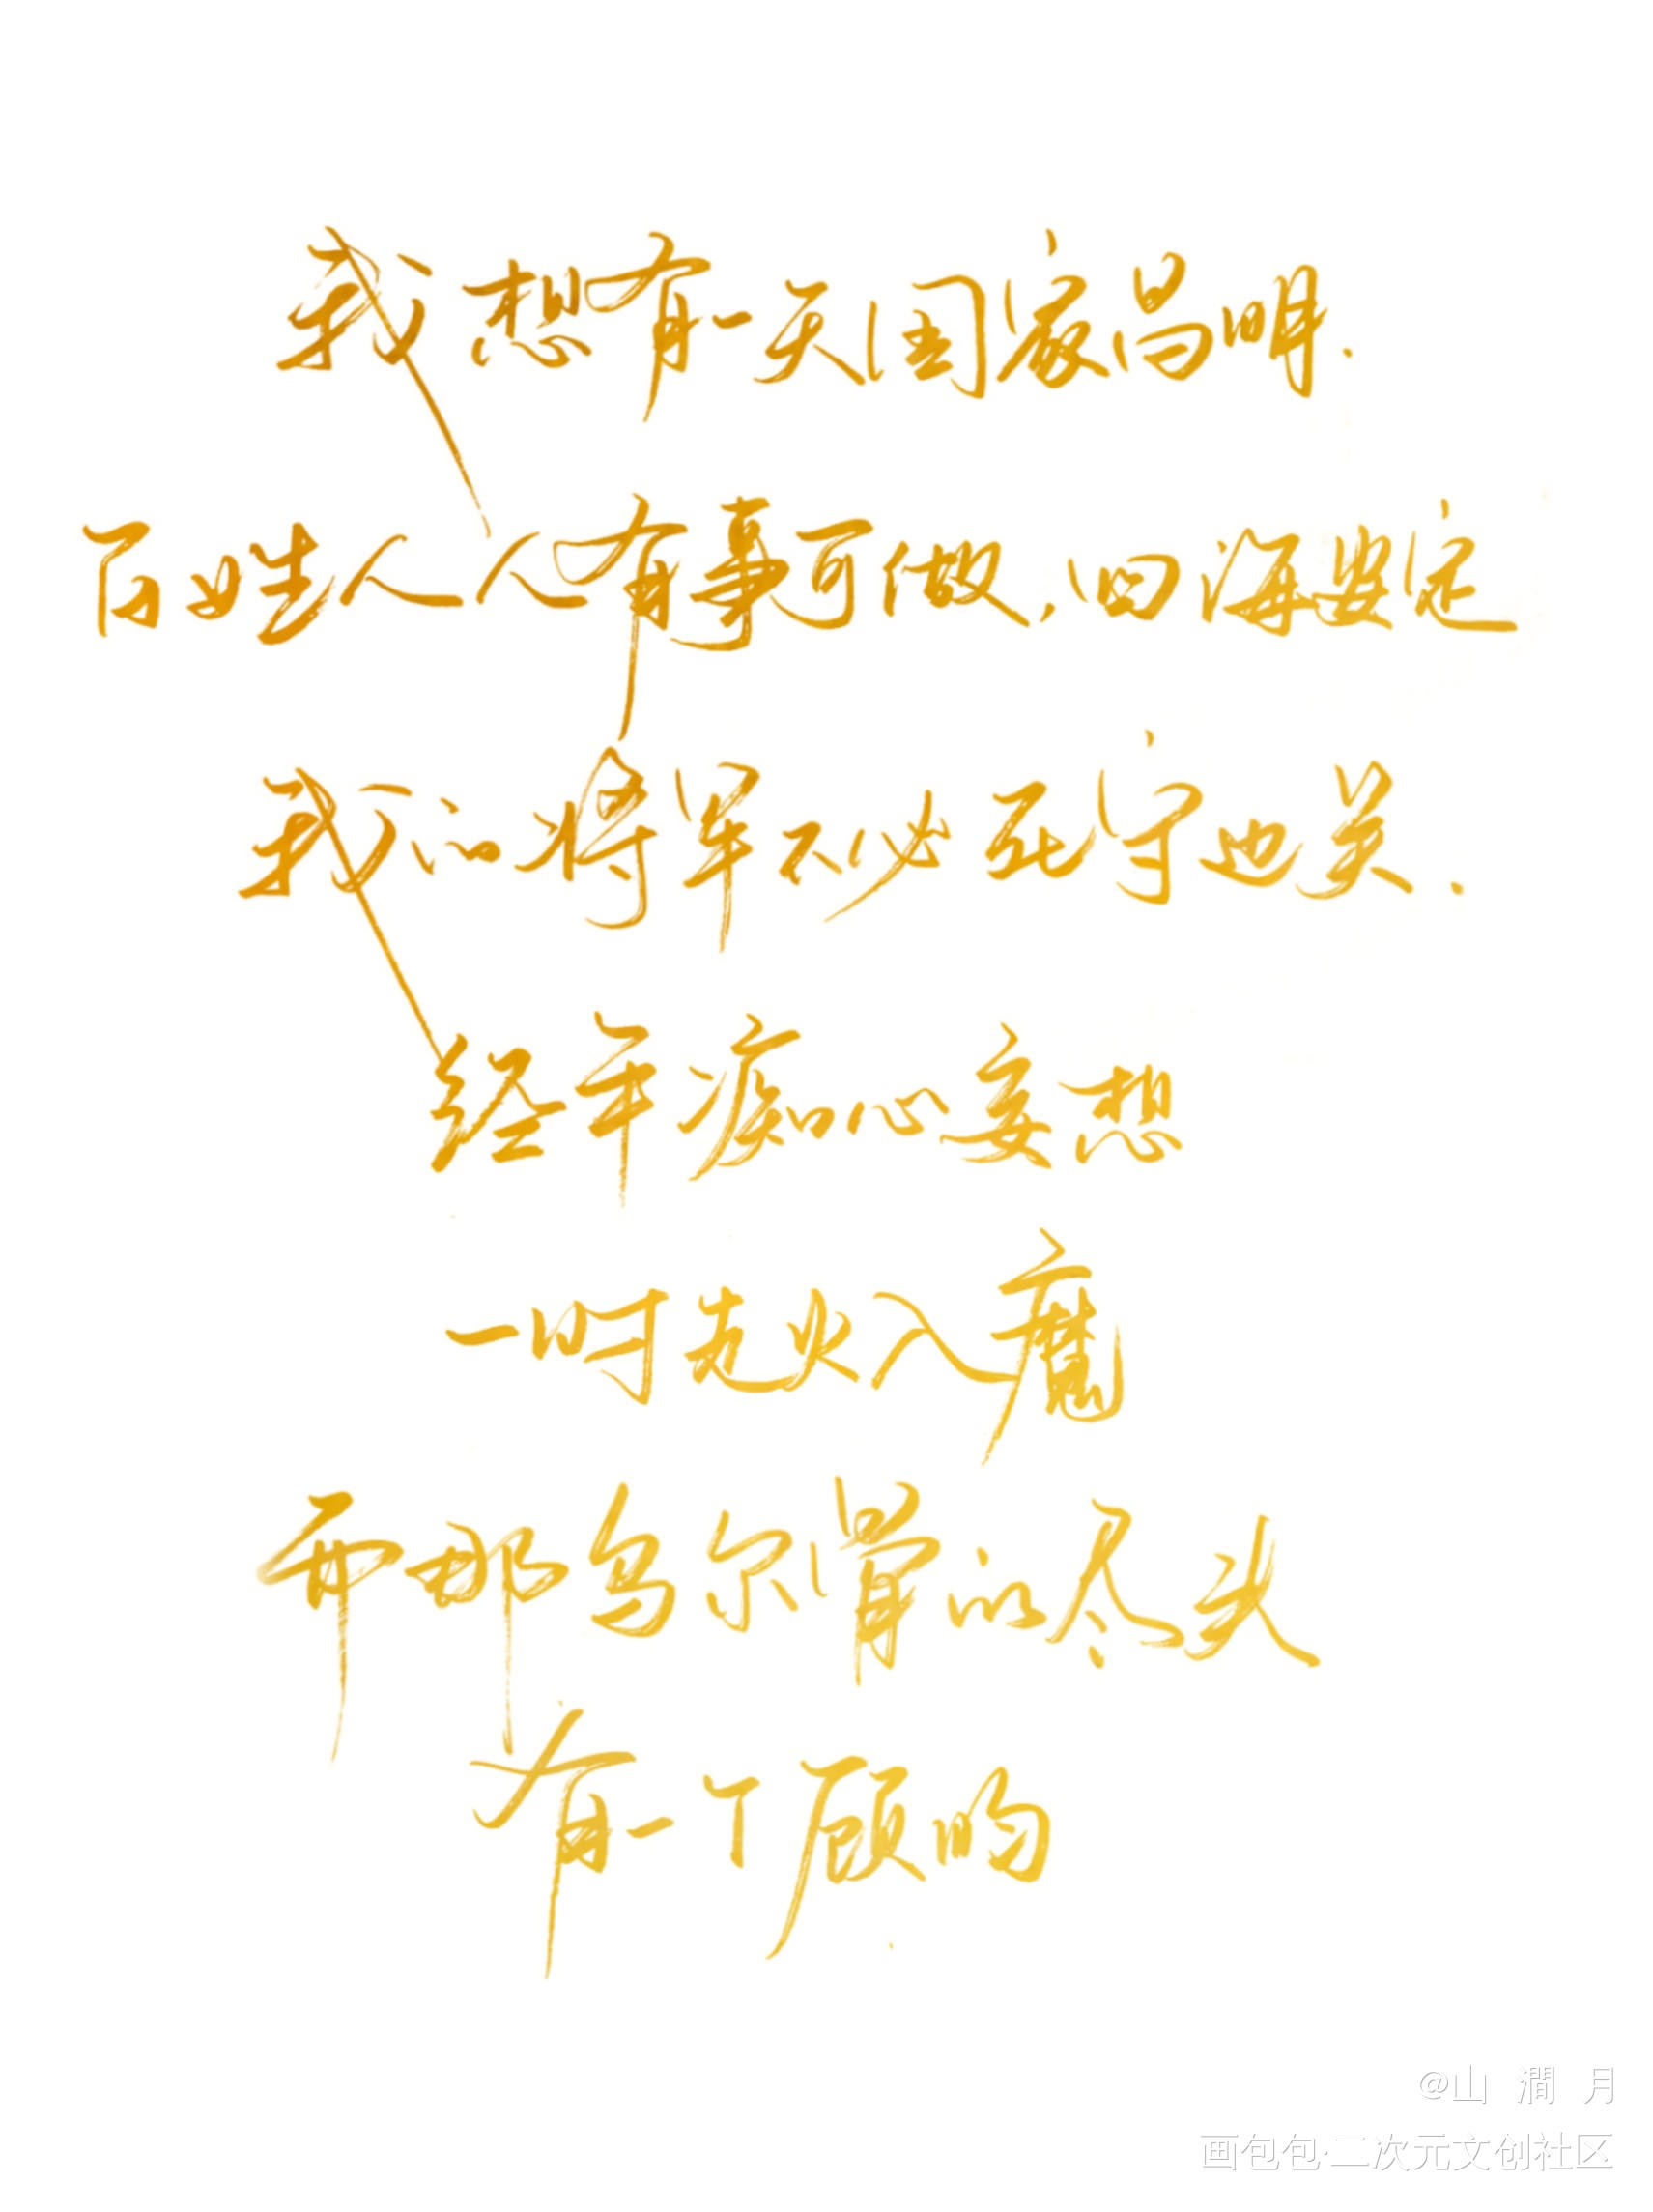 我想有一天国家昌明.
百姓人人有事可做,四海安定
我的将军不必死守边关.
经年痴心妄想
一时走火入魔
开那乌尔骨的尽头
有一个顾昀
@山 澗 月
画包包·二次元文创社区